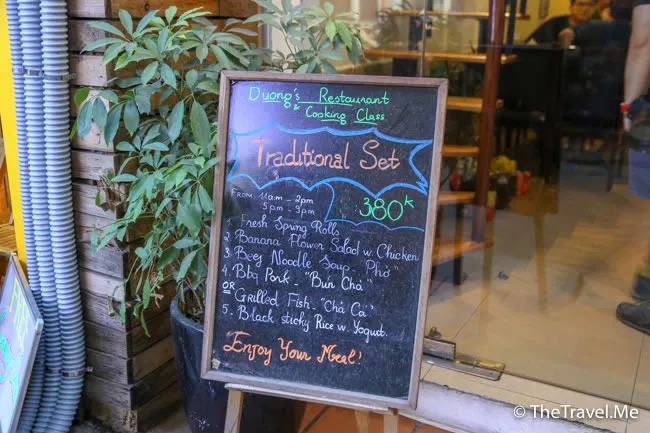 Duong's Restaurant
& Cooking Class
Traditional Set
From 11am - 2pm
5pm - 9pm
380k
Fresh Spring Rolls
2. Banana Flower Salad w. Chicken
3. Beef Noodle Soup "Phở"
4. Bbq Pork - "Bún Chả"
OR
Grilled Fish - "Chả Cá"
5. Black sticky Rice w. Yogurt.
Enjoy Your Meal!
© TheTravel.Me